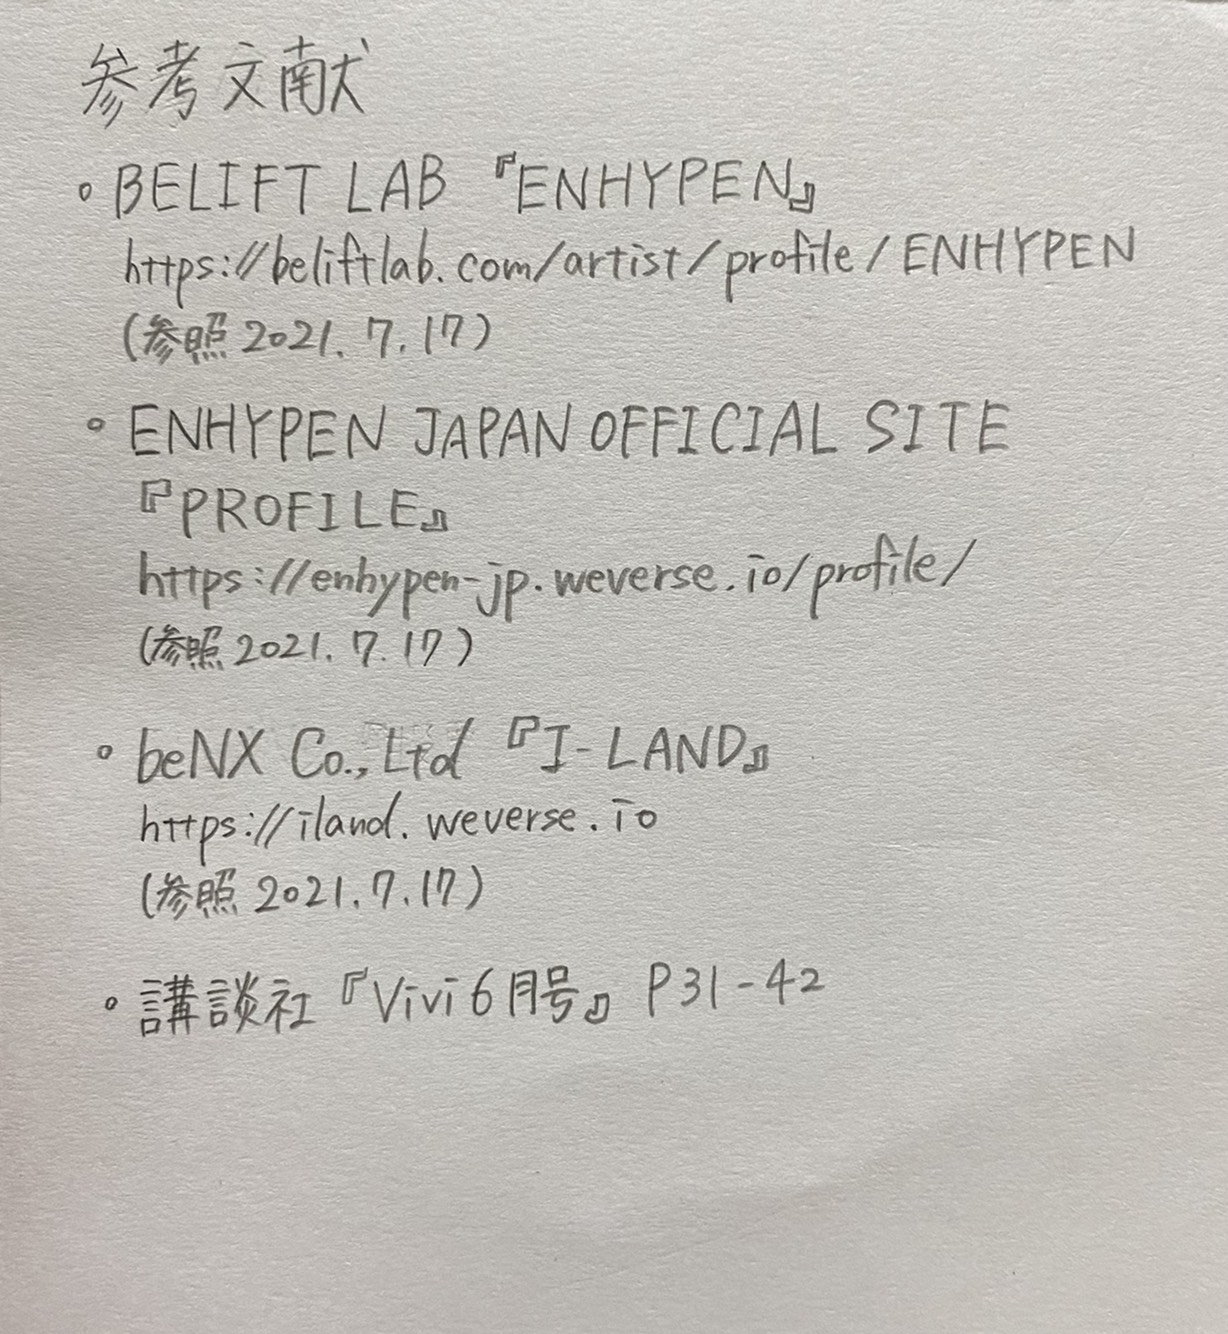 参考文献
• BELIFT LAB 『ENHYPEN』
https://beliftlab.com/artist/profile/ENHYPEN
(参照 2021.7.17)
• ENHYPEN JAPAN OFFICIAL SITE
『PROFILE』
https://enhypen-jp.weverse.io/profile/
(参照 2021.7.17)
• beNX Co.,Ltd 『I-LAND』
https://iland.weverse.io
(参照 2021.7.17)
• 講談社『ViVi 6月号』 P31-42